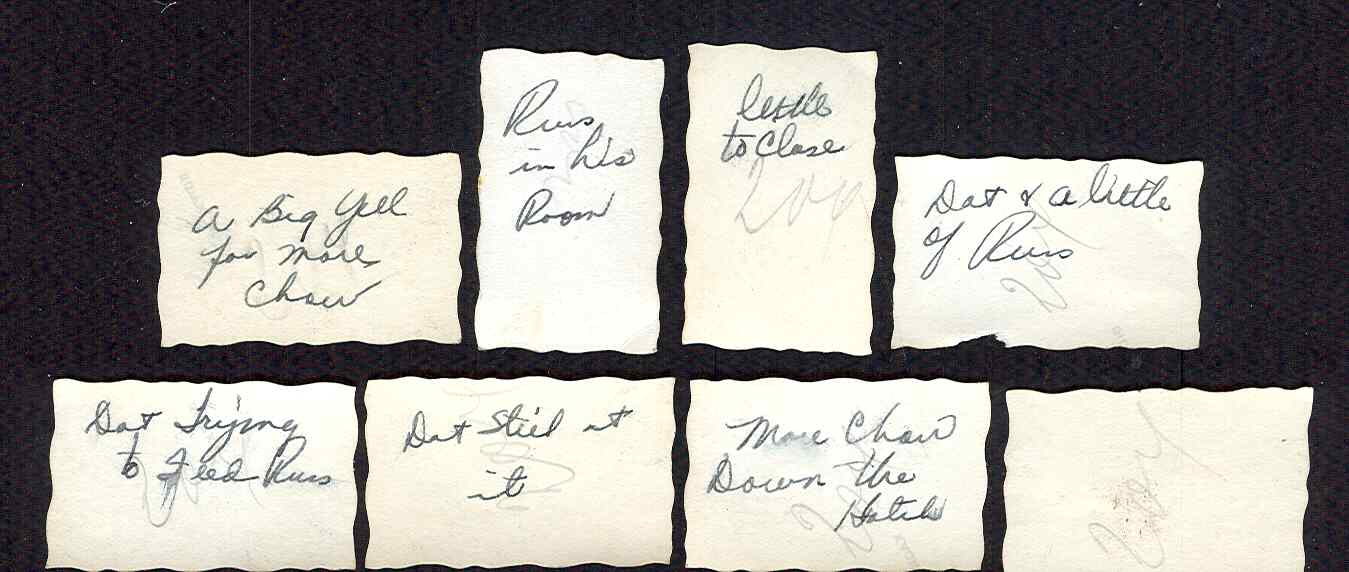 A Big Yell
for more
Chow
Russ
in his
Room
little
to Close
Dot & a little
of Russ
Dot Trying
to Feed Russ
Dot Still at
it
More Chow
Down the
Hatch